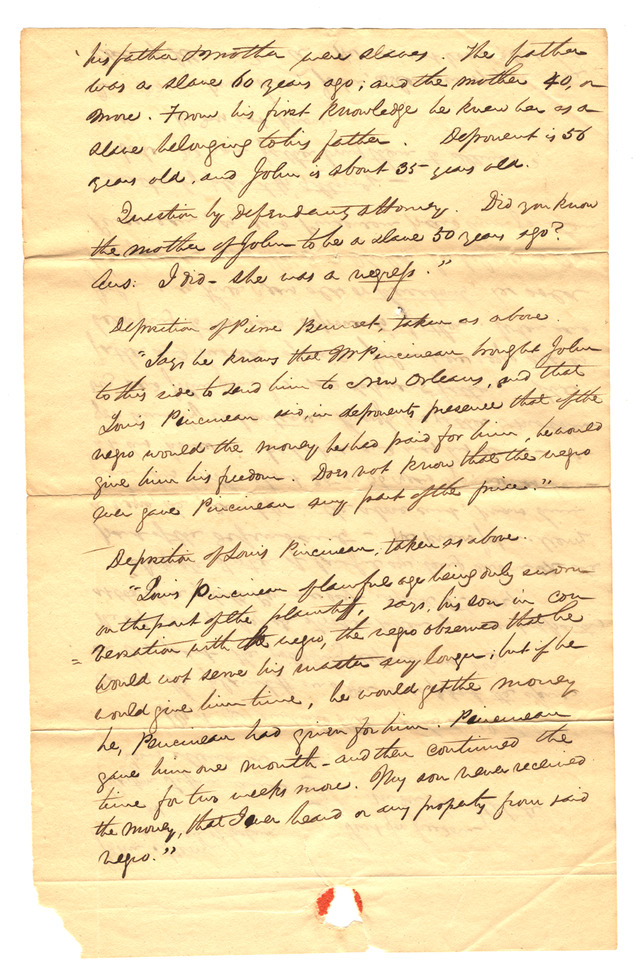 his father & mother were slaves. The father
was a slave 60 years ago; and the mother 40, or
more. From his first knowledge he knew her as a
slave belonging to his father. Deponent is 56
years old, and John is about 35 years old.
Question by defendants attorney. Did you know
the mother of John to be a slave 50 years ago?
Ans: I did - she was a negress."
Deposition of Pierre taken as above.
"Says he knows that Mr Pincineau brought John
to this side to send him to New Orleans, and that
Louis Pincineau said, in deponents presence that if the
negro would the money he had paid for him, he would
give him his freedom. Does not know that the negro
ever gave Pincineau any part of the price."
Deposition of Louis Pincineau, taken as above.
"Louis Pincineau of lawful age being duly sworn
on the part of the plaintiff, says, his son in con-
=versation with the negro, the negro observed that he
would not serve his master any longer; but if he
would give him time, he would get the money
he, Pincineau had given for him. Pincineau
gave him one month - and then continued the
time for two weeks more. My son never received
the money, that I ever heard or any property from said
negro."